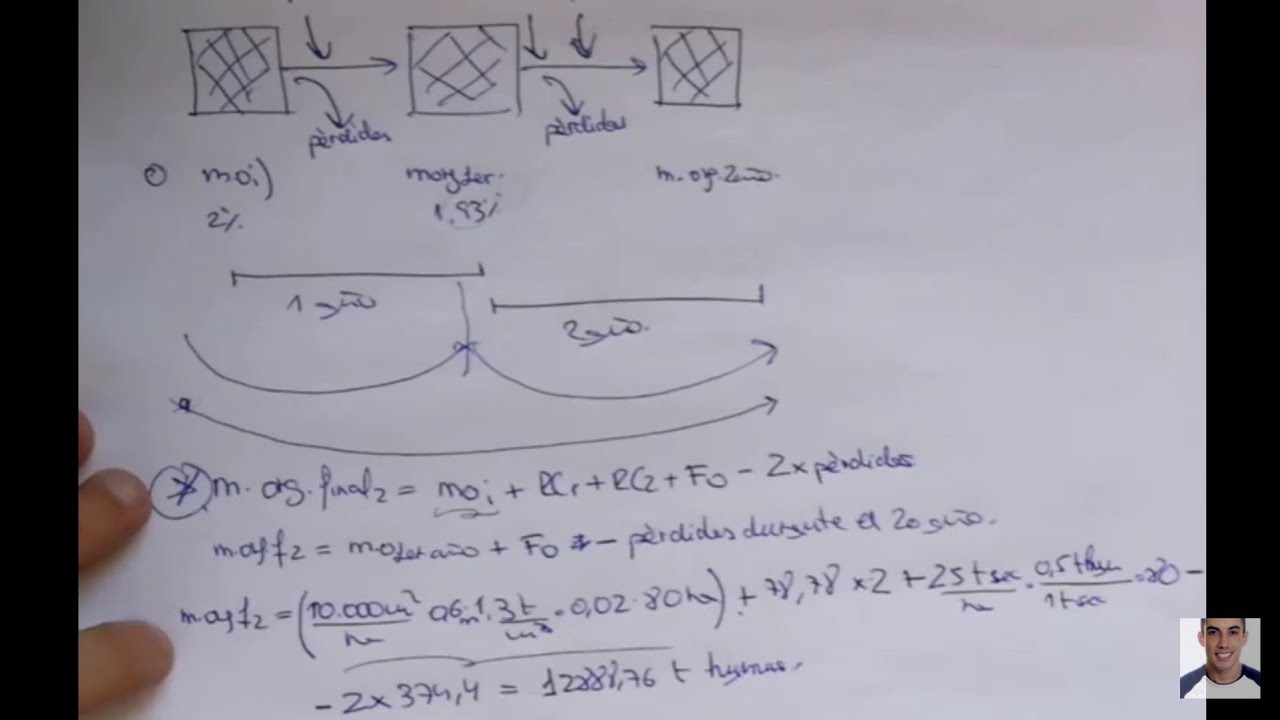 pèrdides pèrdides
① moi) morg1er. m. org. 2año.
2% 1,93%
1 año
2 año.
* m. org. final2 = moi + RC1 + RC2 + FO - 2x pèrdides
m.orgf2 = mo1er año + FO - pèrdides durante el 2o año.
m.orgf2 = (10.000m²/ha 0,6m · 1,3 t/m³ · 0,02 · 80ha) + 78,78 x 2 + 25 t sec/ha · 0,5 t hum/1 t sec · 80 -
- 2 x 374,4 = 12888,76 t humus.